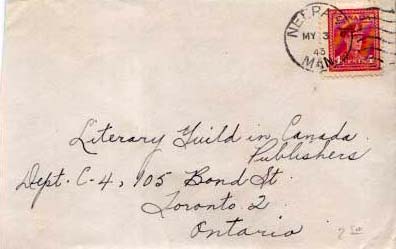 NEEPAWA
MY 3
45
MAN.
CANADA
4 CENTS 4
Literary Guild in Canada
Publishers
Dept. C-4, 105 Bond St.
Toronto 2
Ontario